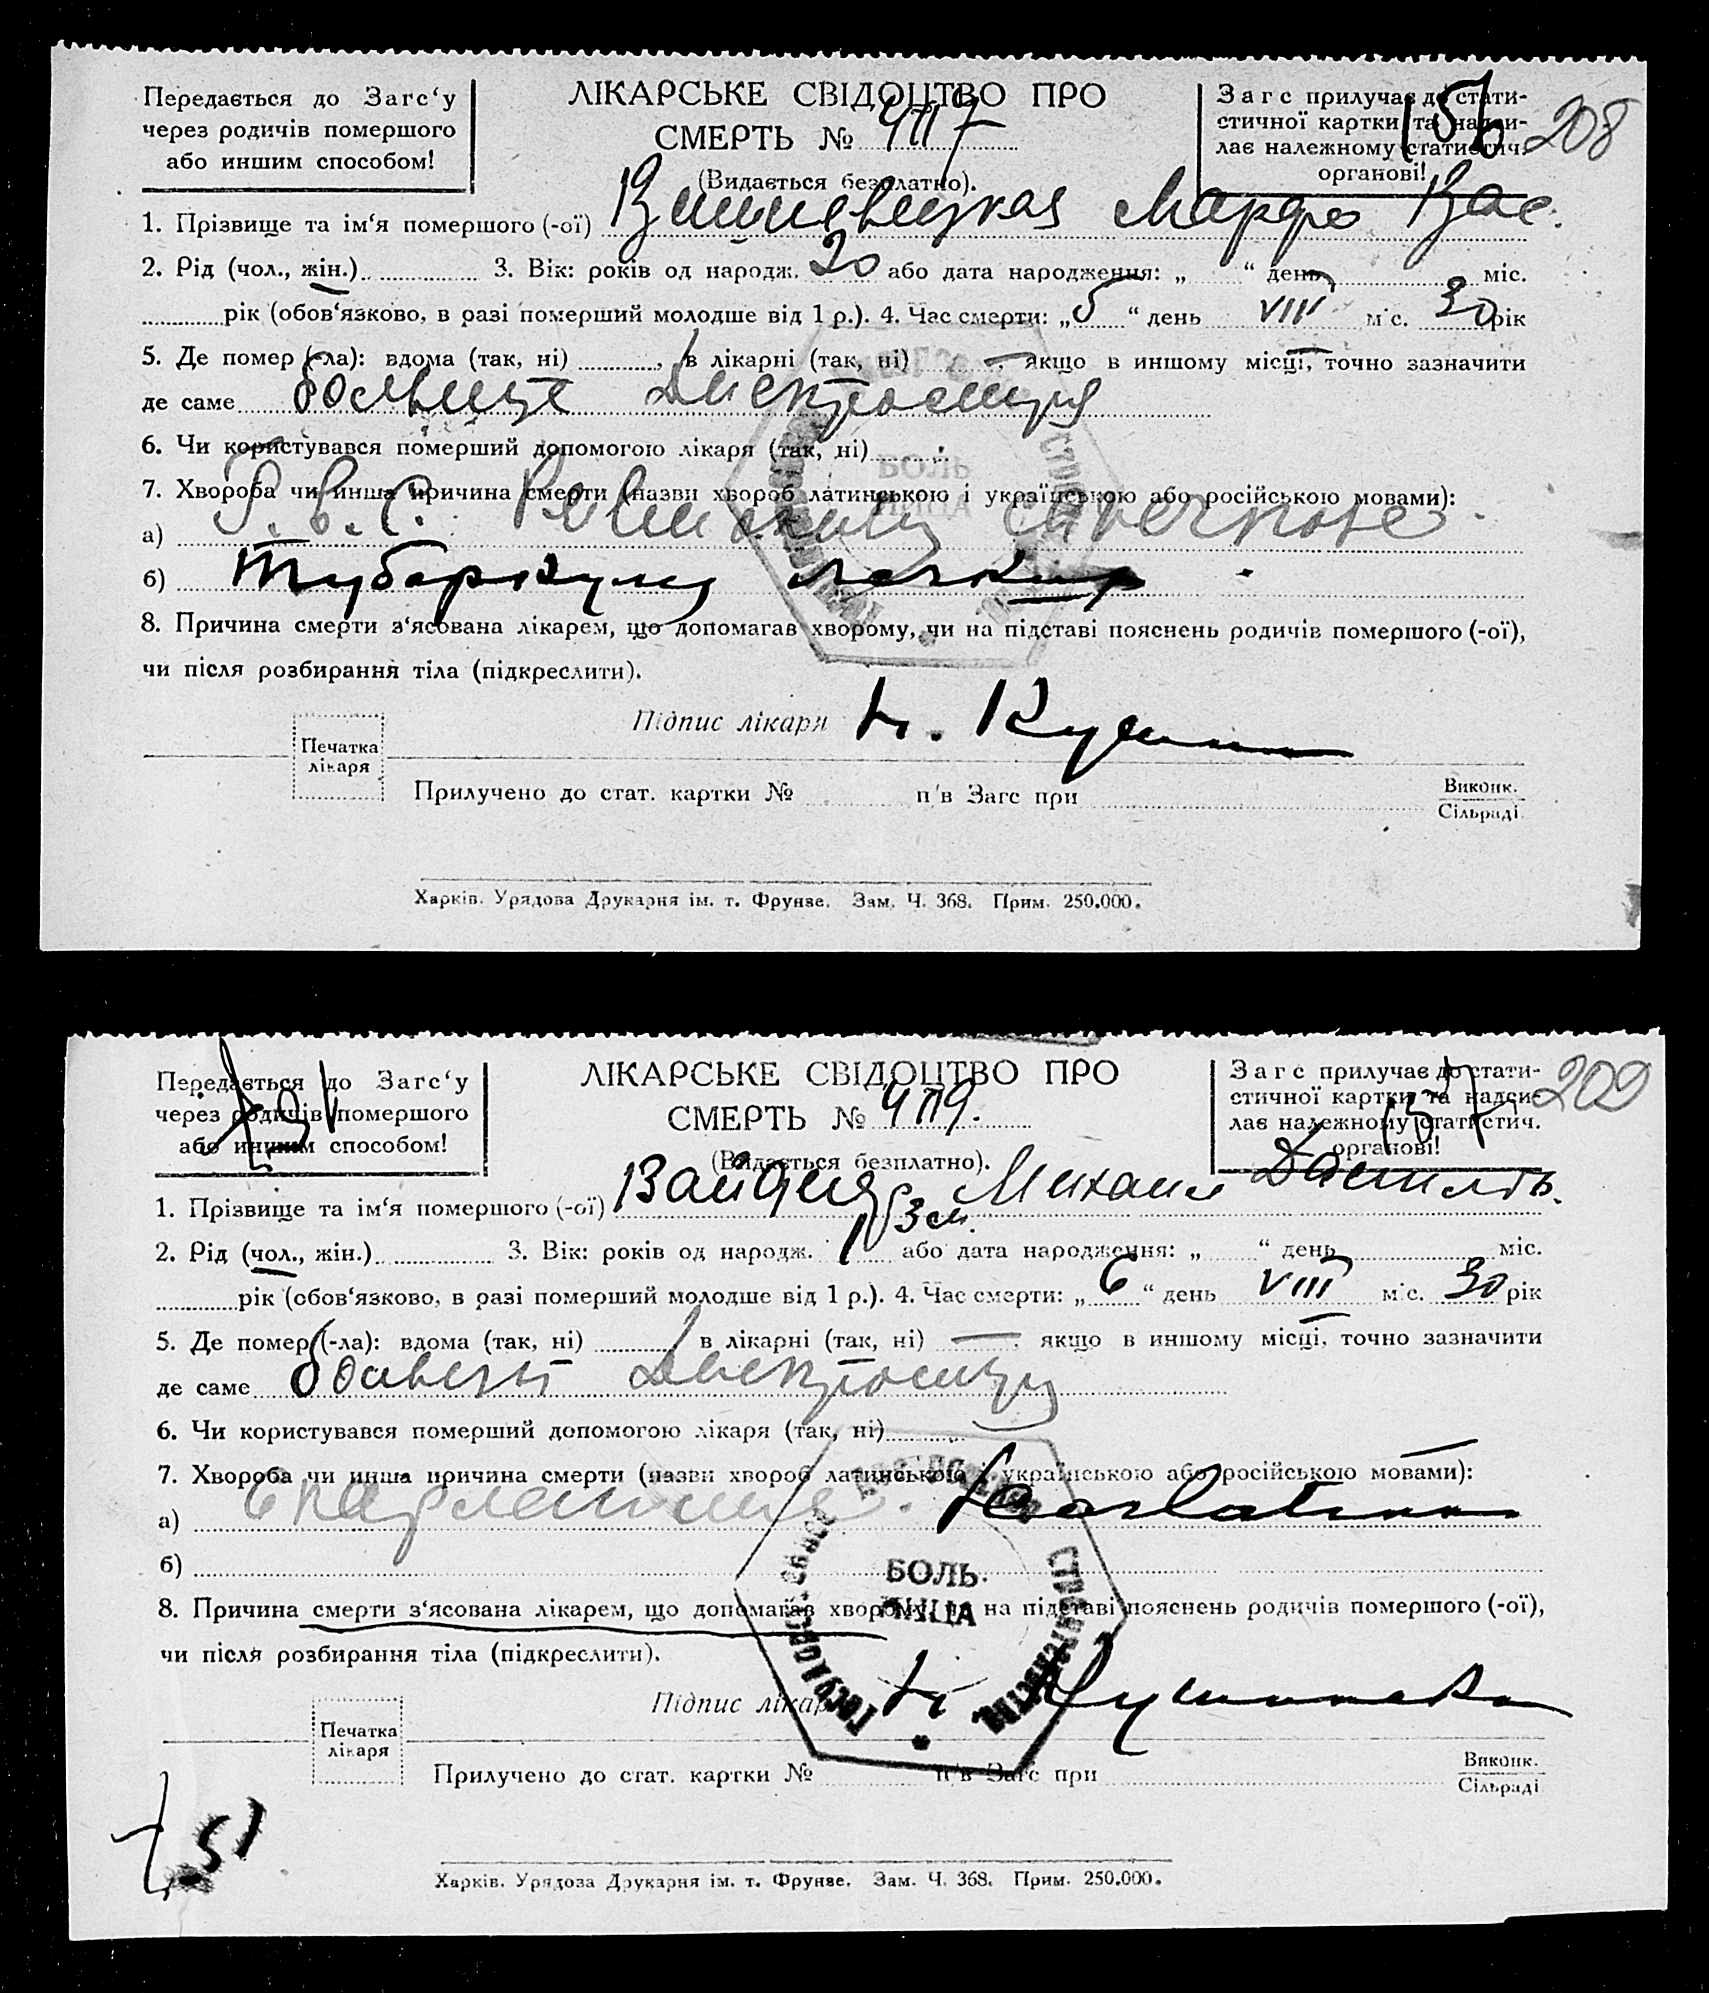 Передається до Загс‘у
через родичів помершого
або иншим способом!
ЛІКАРСЬКЕ СВІДОЦТВО ПРО
СМЕРТЬ № 4117
(Видається безплатно).
Загс прилучає до стати-
стичної картки та надси-
лає належному статистич.
органові!
208
1. Прізвище та ім‘я помершого (-ої) Вишневецкая Марфа Вас.
2. Рід (чол., жін.) 3. Вік: років од народж. 20 або дата народження: „ “ день міс.
рік (обов‘язково, в разі померший молодше від 1 р.). 4. Час смерти: „5“ день VIII міс. 30 рік
5. Де помер (-ла): вдома (так, ні) , в лікарні (так, ні) — , якщо в иншому місці, точно зазначити
де саме
6. Чи користувався померший допомогою лікаря (так, ні)
7. Хвороба чи инша причина смерти (назви хвороб латинською і українською або російською мовами):
а)
б) Туберкулез легких
8. Причина смерти з‘ясована лікарем, що допомагав хворому, чи на підставі пояснень родичів помершого (-ої),
чи після розбирання тіла (підкреслити).
БОЛЬ-
НИЦА
Підпис лікаря
Печатка
лікаря
Прилучено до стат. картки № п'в Загс при Виконк.
Сільраді
Харків. Урядова Друкарня ім. т. Фрунзе. Зам. Ч. 368. Прим. 250.000.
Передається до Загс‘у
через родичів помершого
або иншим способом!
ЛІКАРСЬКЕ СВІДОЦТВО ПРО
СМЕРТЬ № 4119.
(Видається безплатно).
Загс прилучає до стати-
стичної картки та надси-
лає належному статистич.
органові!
157
209
1. Прізвище та ім‘я помершого (-ої) Михаил
2. Рід (чол., жін.) 3. Вік: років од народж. 1 3 м. або дата народження: „ “ день міс.
рік (обов‘язково, в разі померший молодше від 1 р.). 4. Час смерти: „6“ день VIII міс. 30 рік
5. Де помер (-ла): вдома (так, ні) в лікарні (так, ні) — , якщо в иншому місці, точно зазначити
де саме
6. Чи користувався померший допомогою лікаря (так, ні)
7. Хвороба чи инша причина смерти (назви хвороб латинською і українською або російською мовами):
а) Скарлатина. Scarlatina
б)
8. Причина смерти з‘ясована лікарем, що допомагав хворому, чи на підставі пояснень родичів помершого (-ої),
чи після розбирання тіла (підкреслити).
БОЛЬ-
НИЦА
Підпис лікаря
Печатка
лікаря
Прилучено до стат. картки № п'в Загс при Виконк.
Сільраді
51
Харків. Урядова Друкарня ім. т. Фрунзе. Зам. Ч. 368. Прим. 250.000.